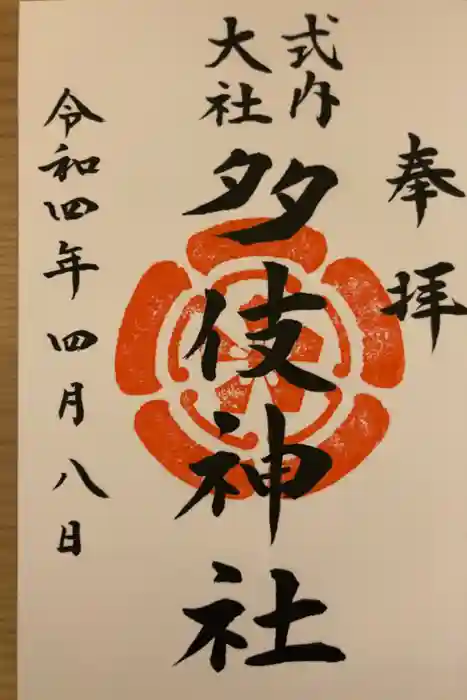 奉拝
式内
大社
多伎神社
令和四年四月八日